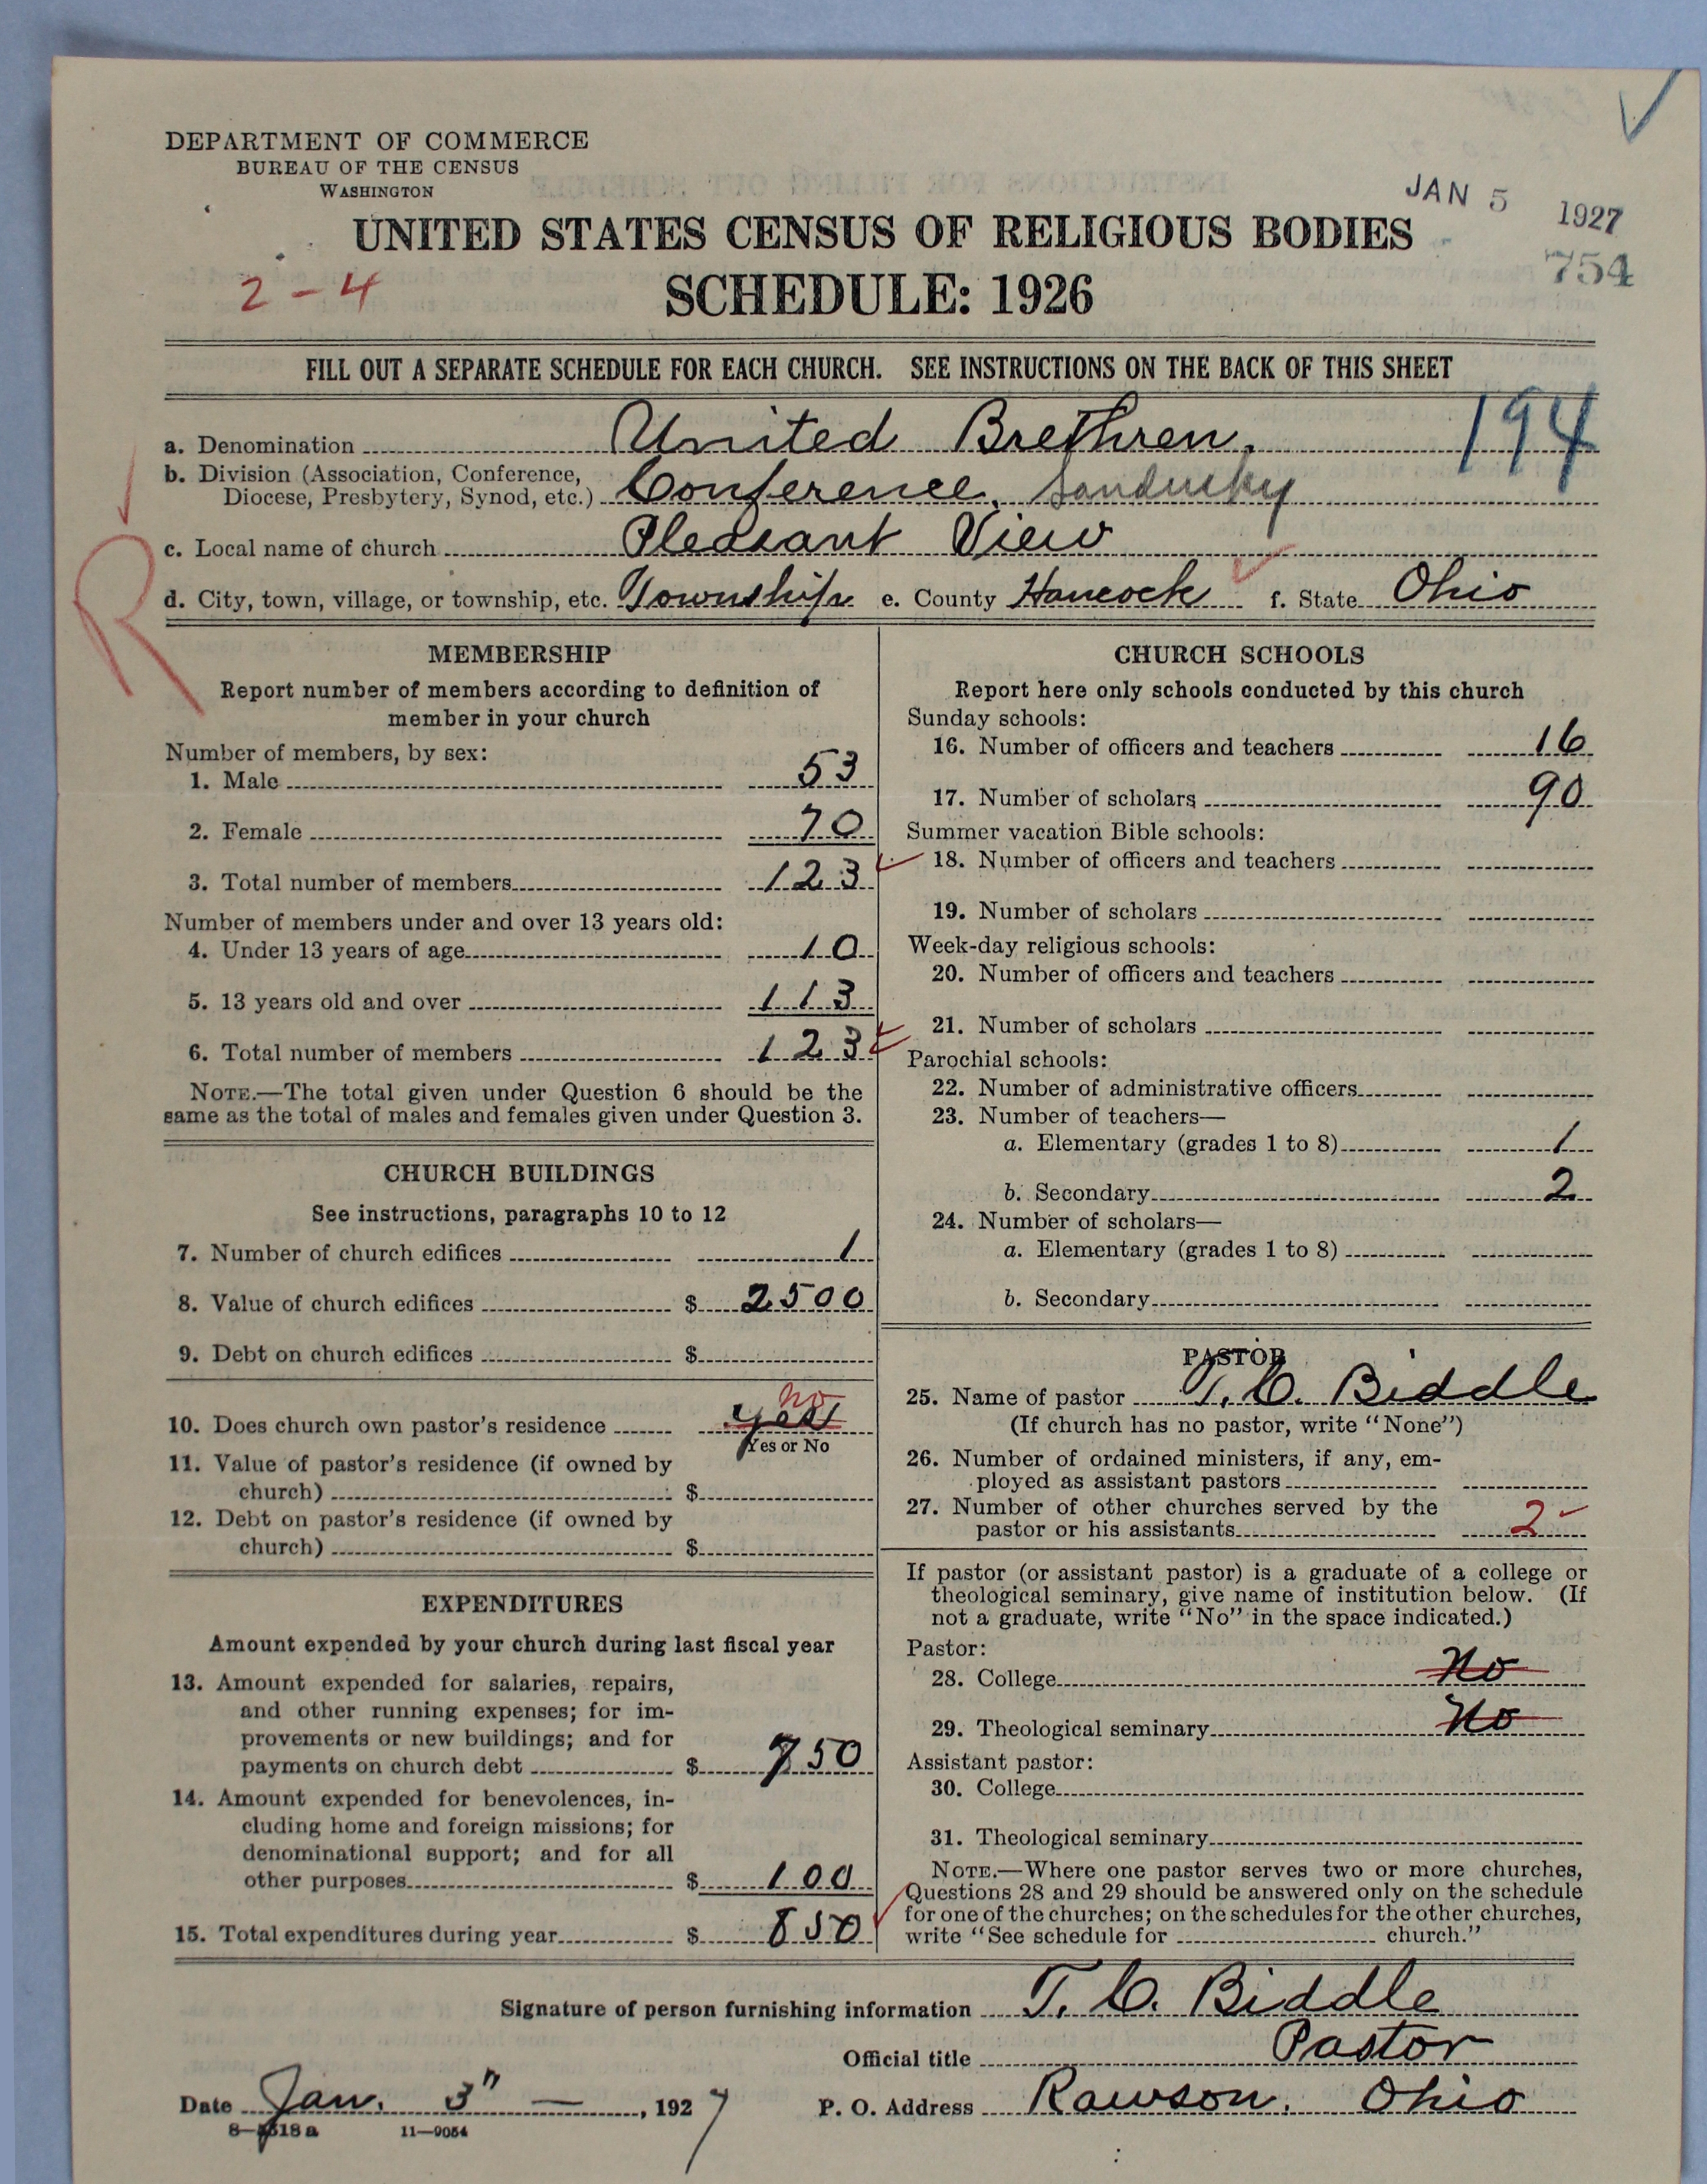 DEPARTMENT OF COMMERCE
BUREAU OF THE CENSUS
WASHINGTON
JAN 5 1927
754
UNITED STATES CENSUS OF RELIGIOUS BODIES
2-4
SCHEDULE: 1926
FILL OUT A SEPARATE SCHEDULE FOR EACH CHURCH. SEE INSTRUCTIONS ON THE BACK OF THIS SHEET
194
a. Denomination United Brethren,
b. Division (Association, Conference,
Diocese, Presbytery, Synod, etc.) Conference, Sandusky
c. Local name of church Pleasant View
R
d. City, town, village, or township, etc. Township e. County Hancock f. State Ohio
MEMBERSHIP
Report number of members according to definition of
member in your church
Number of members, by sex:
1. Male 53
2. Female 70
3. Total number of members 123
Number of members under and over 13 years old:
4. Under 13 years of age 10
5. 13 years old and over 113
6. Total number of members 123
NOTE.—The total given under Question 6 should be the
same as the total of males and females given under Question 3.
CHURCH BUILDINGS
See instructions, paragraphs 10 to 12
7. Number of church edifices 1
8. Value of church edifices $ 2500
9. Debt on church edifices $
no
10. Does church own pastor's residence yes
Yes or No
11. Value of pastor's residence (if owned by
church) $
12. Debt on pastor's residence (if owned by
church) $
EXPENDITURES
Amount expended by your church during last fiscal year
13. Amount expended for salaries, repairs,
and other running expenses; for im-
provements or new buildings; and for
payments on church debt $ 750
14. Amount expended for benevolences, in-
cluding home and foreign missions; for
denominational support; and for all
other purposes $ 100
15. Total expenditures during year $ 850
CHURCH SCHOOLS
Report here only schools conducted by this church
Sunday schools:
16. Number of officers and teachers 16
17. Number of scholars 90
Summer vacation Bible schools:
18. Number of officers and teachers
19. Number of scholars
Week-day religious schools:
20. Number of officers and teachers
21. Number of scholars
Parochial schools:
22. Number of administrative officers
23. Number of teachers—
a. Elementary (grades 1 to 8) 1
b. Secondary 2
24. Number of scholars—
a. Elementary (grades 1 to 8)
b. Secondary
PASTOR
25. Name of pastor T. C. Biddle
(If church has no pastor, write "None")
26. Number of ordained ministers, if any, em-
ployed as assistant pastors
27. Number of other churches served by the
pastor or his assistants 2
If pastor (or assistant pastor) is a graduate of a college or
theological seminary, give name of institution below. (If
not a graduate, write "No" in the space indicated.)
Pastor:
28. College No
29. Theological seminary No
Assistant pastor:
30. College
31. Theological seminary
NOTE.—Where one pastor serves two or more churches,
Questions 28 and 29 should be answered only on the schedule
for one of the churches; on the schedules for the other churches,
write "See schedule for church."
Signature of person furnishing information T. C. Biddle
Official title Pastor
Date Jan. 3" — , 1927 P. O. Address Rawson, Ohio
11—9054